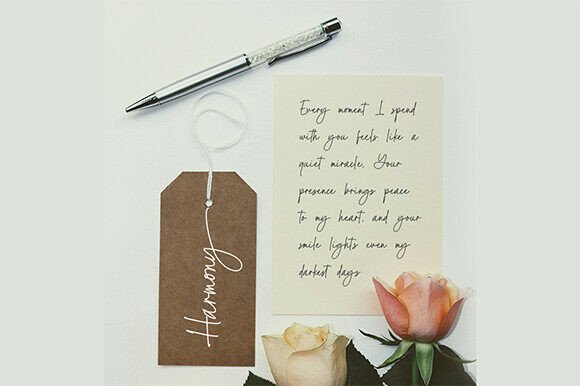 Every moment I spend
with you feels like a
quiet miracle. Your
presence brings peace
to my heart, and your
smile lights even my
darkest days
Harmony